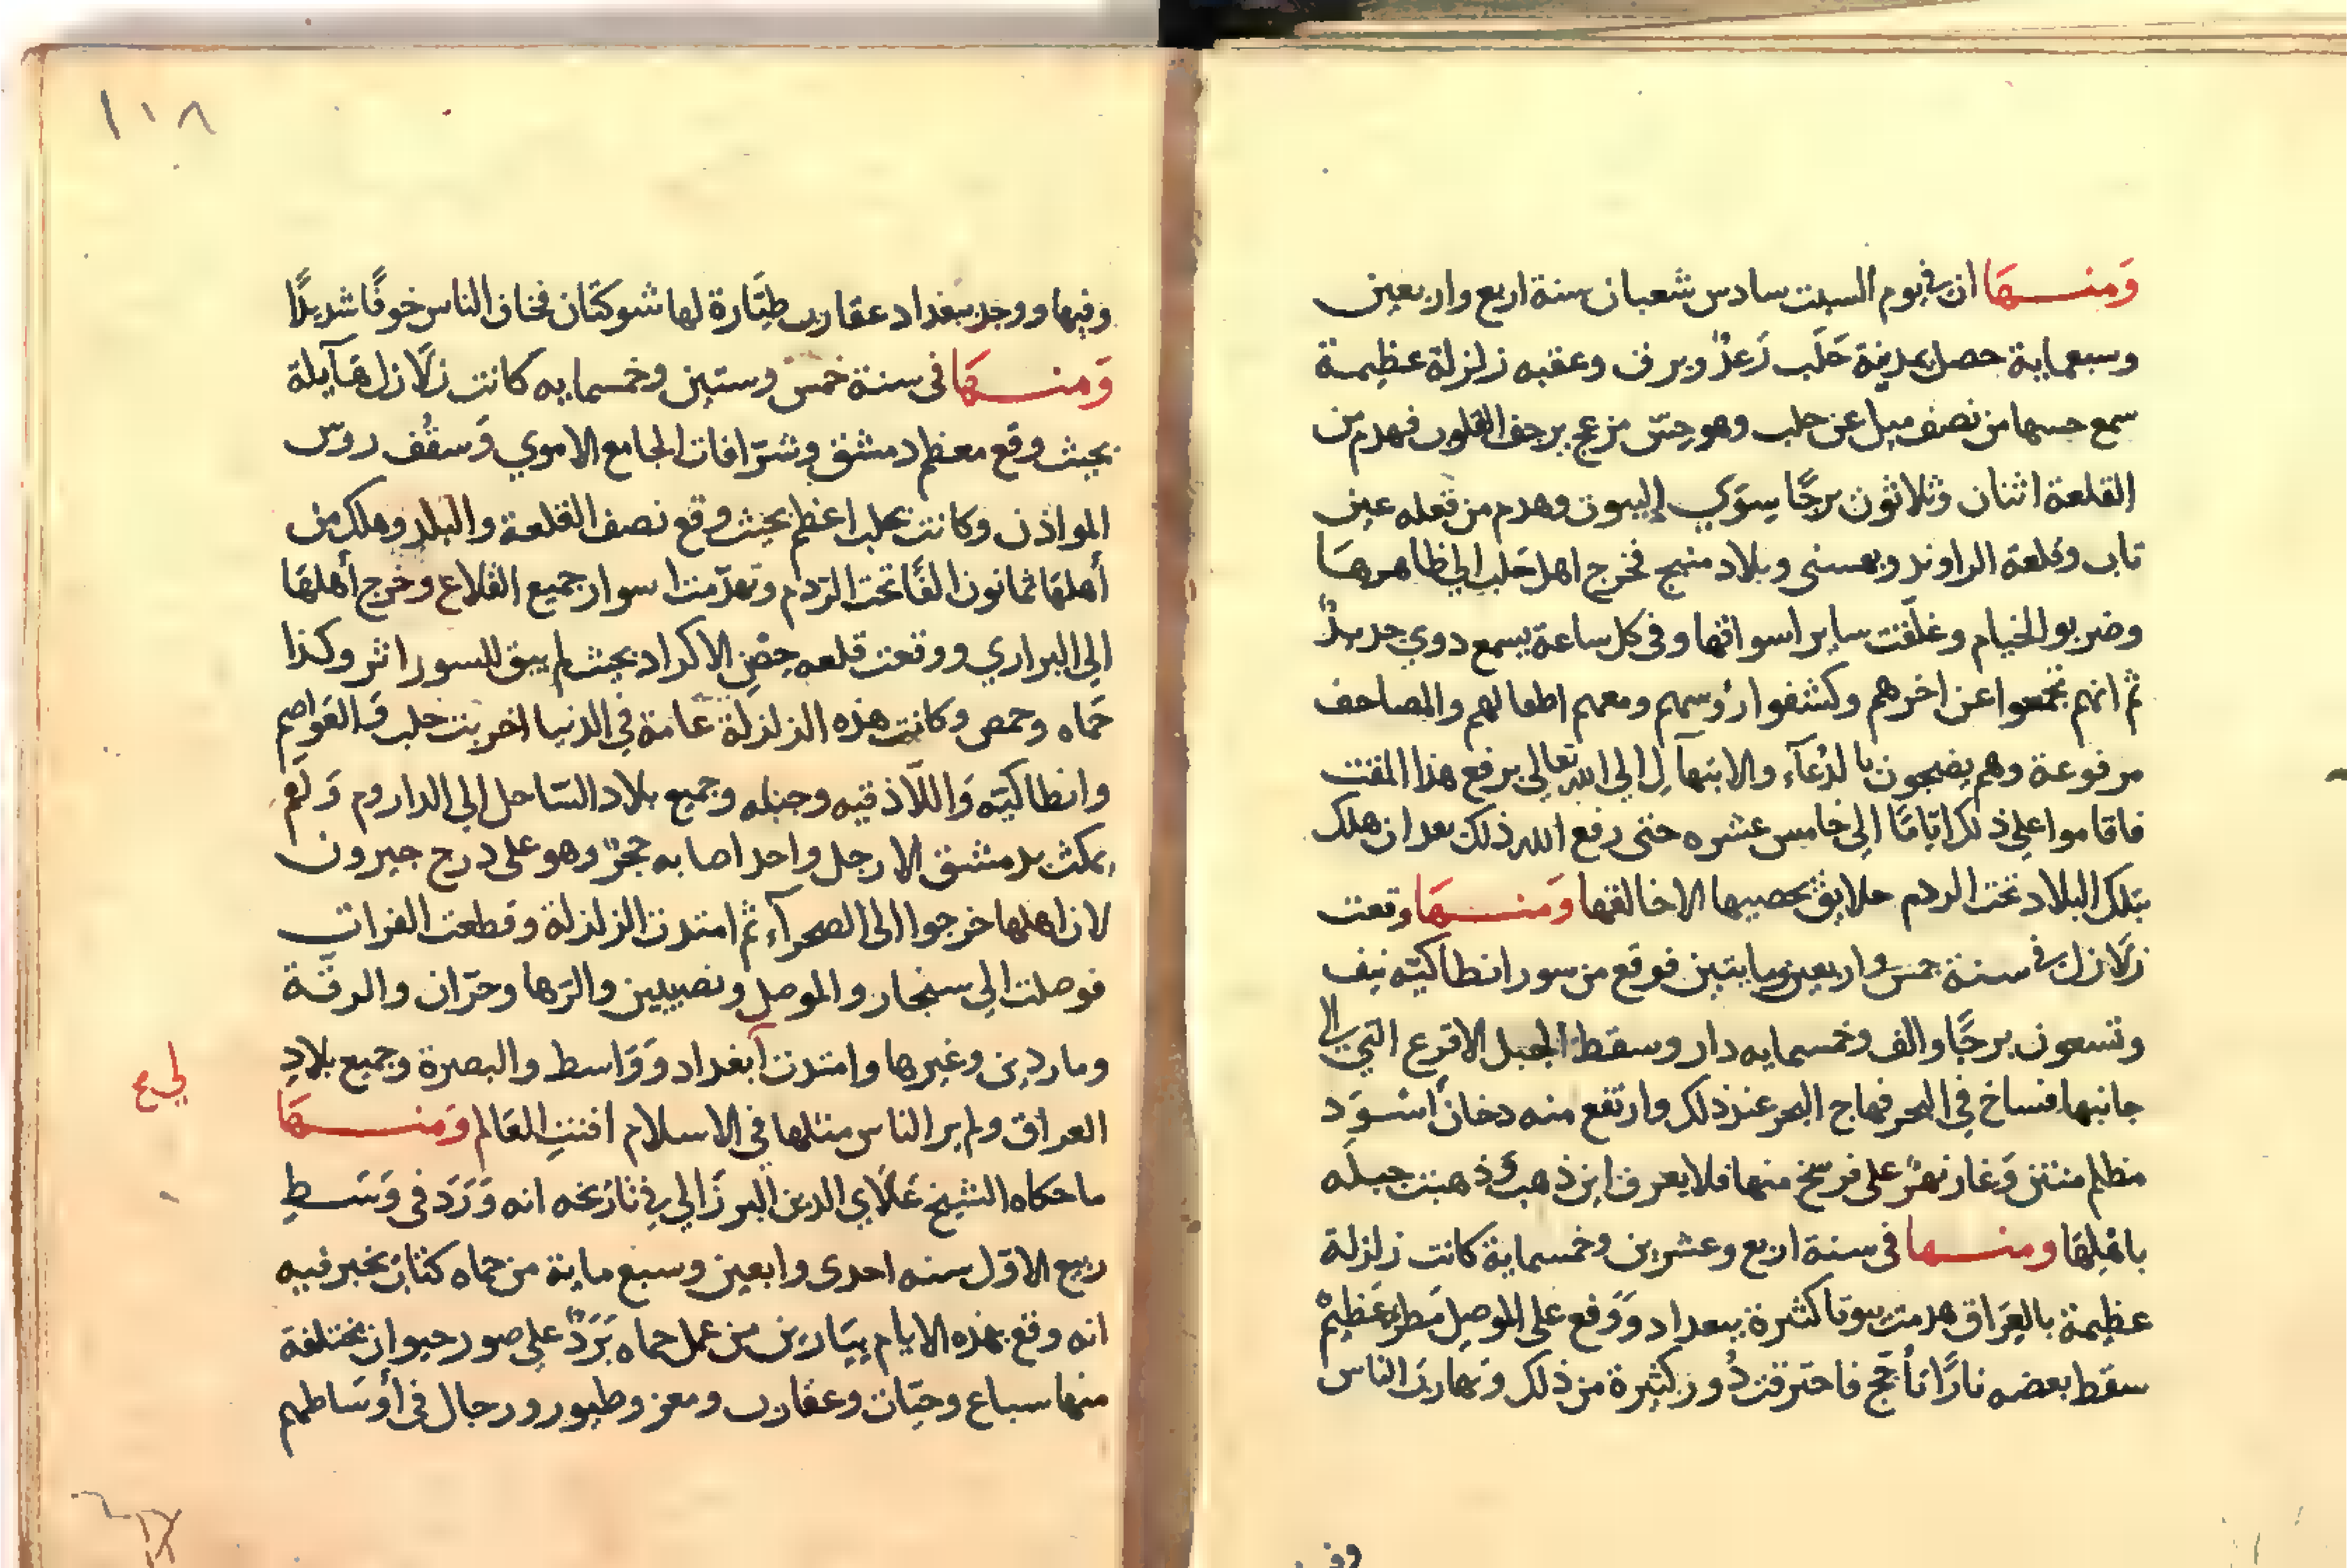 وَمنـــهَا ان في يوم السبت سادس شعبان سنة اربع واربعين
وسبعماية حصل بمدينة حَلَب رَعدٌ وبرق وعقبه زلزلة عظيمة
سمع حسها من نصف ميل عن حلب وهو حِسّ مزعج يرجف القلوب فهدم من
القلعة اثنان وثلاثون برجًا سِوَي البيوت وهدم من قلعه عين
تاب وقلعة الراوند وبهسنى وبلاد منبج فخرج اهل حَلب الي ظاهرهَا
وضربو الخيام وغلّقت ساير اسواقها وفى كل ساعة يسمع دوي جديدٌ
ثم انهم تجمعوا عن اخرهم وكشفوا رؤسهم ومعهم اطفالهم والمصاحف
مرفوعة وهم يضجون بالدُعَآء والابتهاَل الي الله تعالي برفع هذا المقت
فاقاموا علي ذلك ايّامًا الي خامس عشره حتى رفع الله ذلك بعد ان هلك
بتلك البلاد تحت الردم خلايق لا يحصيها الا خالقها وَمنـــهَا وقعت
زلَازل في سنة خمس واربعين ومايتين فوقع من سور انطاكيّه نيف
وتسعون برجًا والف وخمسمايه دار وسقط الجبل الاقرع التي الي
جانبها فساخ في البحر فهاج البحر عند ذلك وارتفع منه دخانٌ أسْوَد
مظلم منتن وَغار نهرٌ على فرسخ منها فلا يعرف اين ذهب وَذهبت جبلَه
باهْلِهَا ومنـــها فى سنة اربع وعشرين وخمسماية كانت زلزلة
عظيمة بالعِرَاق هدمت بيوتا كثيرة ببغداد وَوَقع على الموصِل مَطر عَظِيمْ
سقط بعضه نارًا تأجّج فاحترقت دُور كثيرة من ذلك وَتهارَبَ الناس
وفيها
١١٨
وفيها ووجد ببغداد عقارب طيَّارة لها شوكتان فخاف الناس خوفًا شديدًا
وَمنـــهَا فى سنة خمس وستين وخمسمايه كانت زلَازل هَآيلة
بحيث وقع معظم دمشق وشرّافات الجامع الاموي وَسقُف روس
المواذن وكانت بحلب اعظم بحيث وقع نصف القلعة والبلد وهلك من
أهلهَا ثمانون الفًا تحت الرّدم وتهدّمت اسوار جميع القلاع وخرج أهلهَا
الي البراري ووقعت قلعه حِصْن الاكراد بحيث لم يبق للسور اثر وكذا
حَماه وحمص وكانت هذه الزلزلة عامة في الدنيا اخربت حلب وَالعَواصم
وانطاكيّه وَاللّاذقيه وجبله وجميع بلاد السّاحل الي الداروم وَلَم
يمكث بدمشق الا رجل واحد اصابه حجرٌ وهو على درج جيرون
لان اهلها خرجوا الى الصحرآء ثم امتدت الزلزلة وقطعت الفرات
فوصلت الي سنجار والموصل ونصيبين والرّها وحرّان والرقّة
وماردين وغيرها وامتدت آبغداد وَوَاسط والبصرة وجميع بلادِ
لي ع
العراق ولم ير الناس مثلها في الاسلام افنتِ العَالم وَمنـــهَا
ما حكاه الشيخ عَلَاي الدين البرزَالي في تاريخه انه وَرَدَ فى وَسَطِ
ربيع الاوّل سنه احدى وابعين وسبع ماية من حماه كتابٌ يخبر فيه
انه وقع بهذه الايام ببَارين من عمل حماه بَرَدٌ علي صور حيوان مختلفة
منها سباع وحيّات وعقارب ومعز وطيور ورجال فى أوسَاطهم